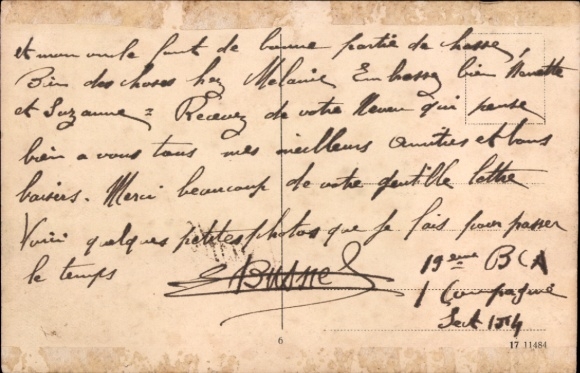 et mon oncle font de bonne partie de chasse,
Bien des choses hez Melanie Embassez bien Henriette
et Suzanne = Recevez de votre Neveu qui pense
bien a vous tous mes meilleurs amitiés et bons
baisers. Merci beaucoup de votre gentille lettre
Voici quelques petites photos que je fais pour passer
le temps
19 eme BCA
1 Compagnie
Sect 114
6
17 11484